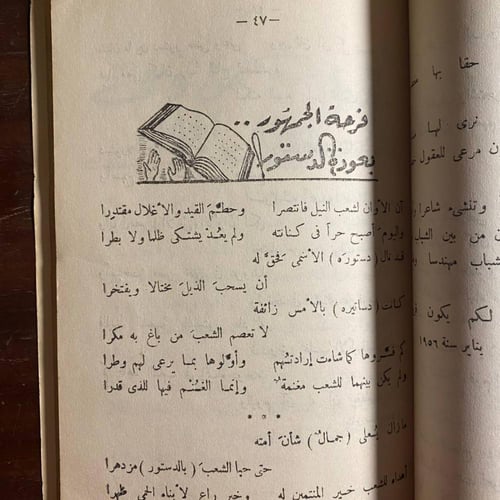 — ٤٧ —
فرحة الجمهور ..
بعودة الدستور
آن الأوان لشعب النيل فانتصرا وحطّم القيد والأغلال مقتدرا
واليوم أصبح حراً في كنانته ولم يعُد يشتكى ظلما ولا بطرا
قد نال (دستوره) الأسمى فحُقّ له
أن يسحبَ الذيلَ مختالا ويفتخرا
كانت (دساتيره) بالأمس زائفة
لا تعصم الشعبَ من باغ به مكرا
كم فسّروها كما شاءت إرادتُهم وأوّلوها بما يرعى لهم وطرا
ولم يكن بينها للشعب مغنمةٌ وإنمـا الغُنْم فيها للذى قدرا
مازال يُعلى (جمالٌ) شأنَ أمته
حتى حبا الشعبَ (بالدستور) مزدهرا
أهداه للشعب خير المنتمين له وخير راع لأبناء الحمى ظهرا
حقا بها
نرى لها
مرعى للعقول
وتنشىء شاعرا
من بين الشباب
شباب مهندسا
لكم يكون
يناير سنة ١٩٥٦